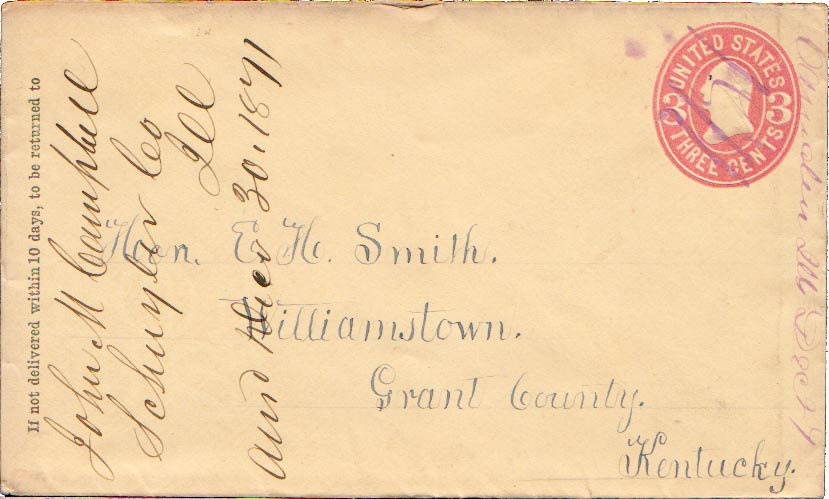 If not delivered within 10 days, to be returned to
John M Campbell
Schuyler Co
Ill
30, 1871
UNITED STATES
3 3
THREE CENTS
Hon. E. H. Smith.
Williamstown.
Grant County.
Kentucky.
Ills Dec 29